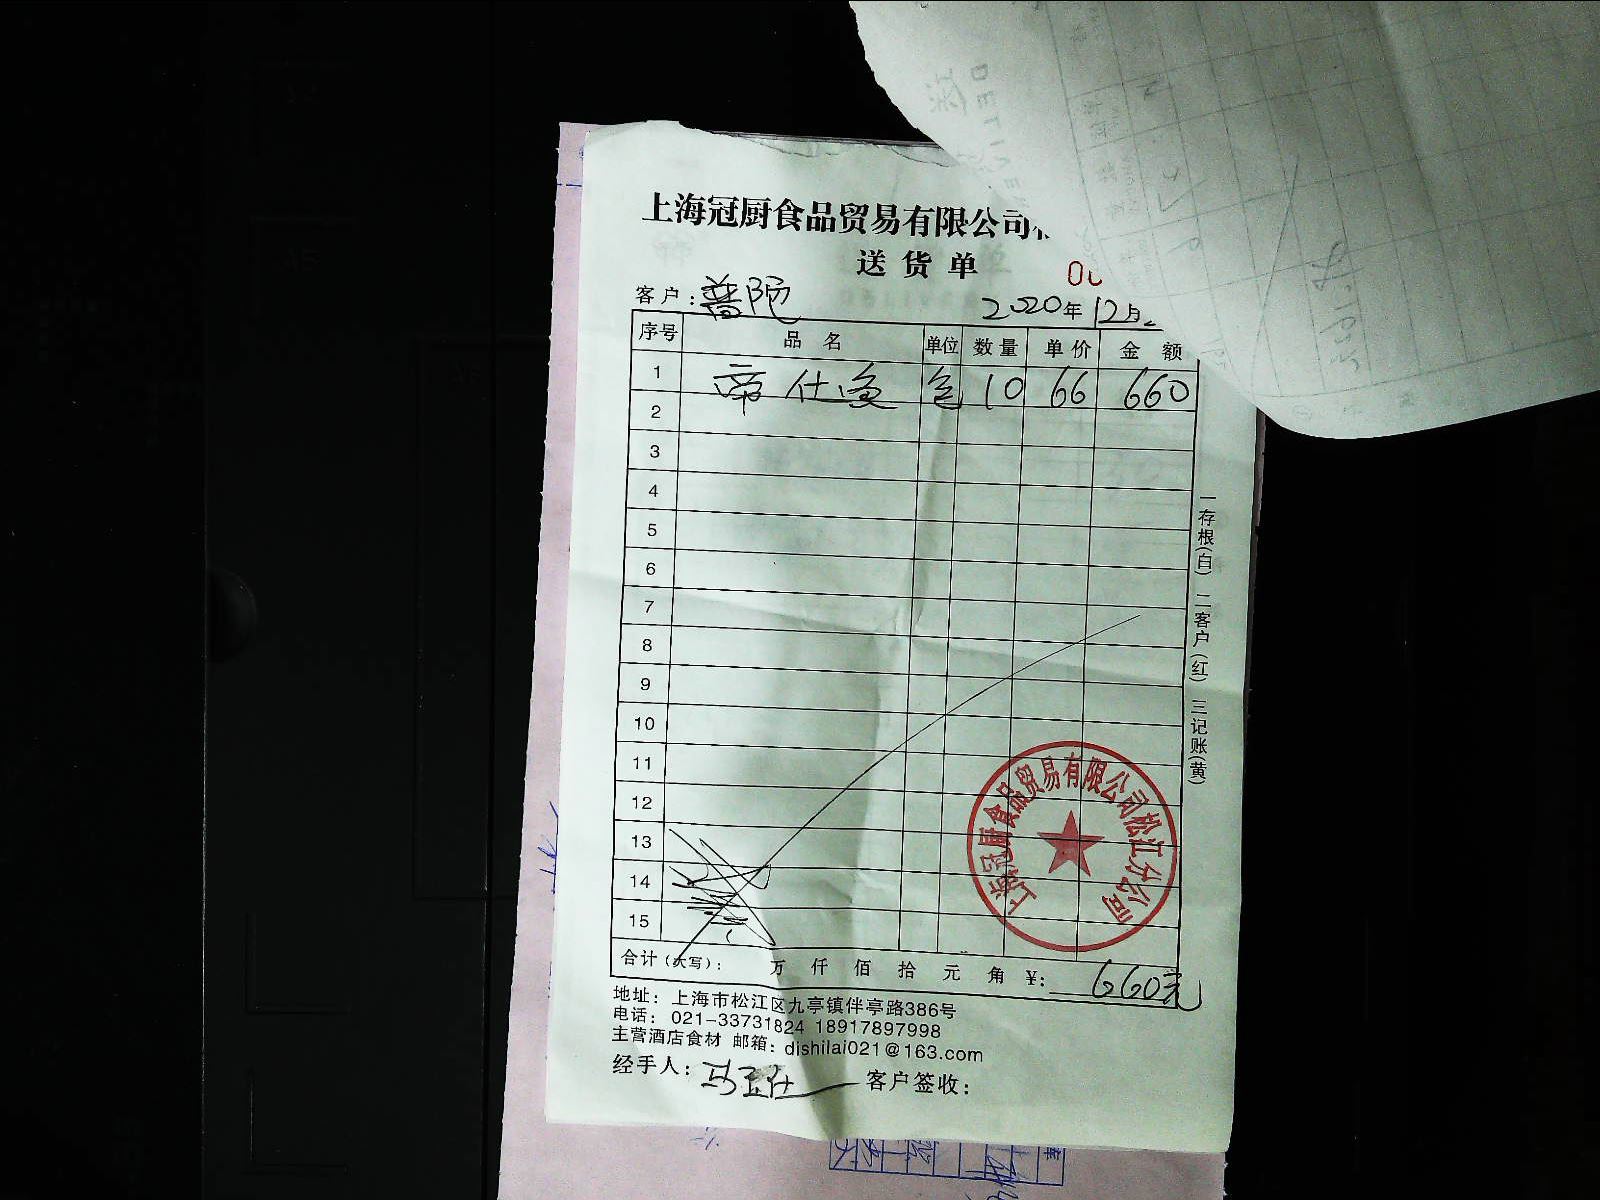 上海冠厨食品贸易有限公司
送货单
客户：普陀
2020年12月
序号 品名 单位 数量 单价 金额
1 帝仕曼 包 10 66 660
2
3
4
5
6
7
8
9
10
11
12
13
14
15
合计（大写）： 万 仟 佰 拾 元 角 ¥: 660元
地址：上海市松江区九亭镇伴亭路386号
电话：021-33731824 18917897998
主营酒店食材 邮箱：dishilai021@163.com
经手人： 客户签收：
一存根(白) 二客户(红) 三记账(黄)
上海冠厨食品贸易有限公司松江分公司